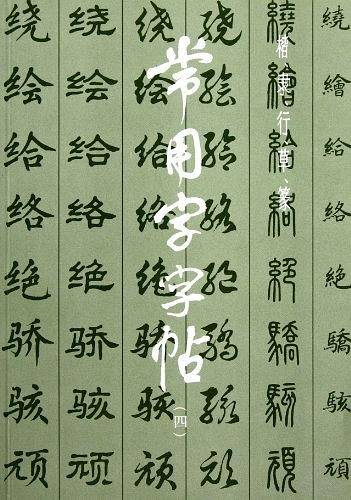 常用字字帖
(四)
楷、隶、行、草、篆
绕绘给络绝骄骇顽
绕绘给络绝骄骇顽
绕绘给络绝骄骇顽
绕绘给络绝骄骇顽
繞繪給絡絶驕駭頑
繞繪給絡絶驕駭頑